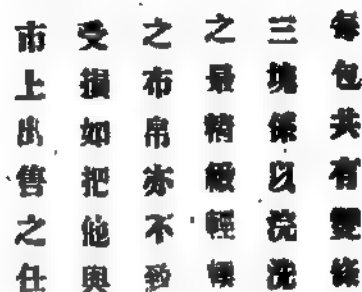 每包共有堅絲
三塊保以浣洗
之最精緻輕
之布帛亦不致
受損如把他與
市上出售之任